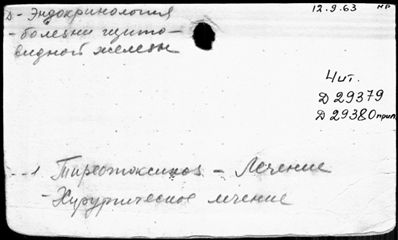 Д - Эндокринология
12.9.63
- болезни щито-
видной железы
Чит.
Д 29379
Д 29380 прил.
1. Тиреотоксикоз - Лечение
- Хирургическое лечение